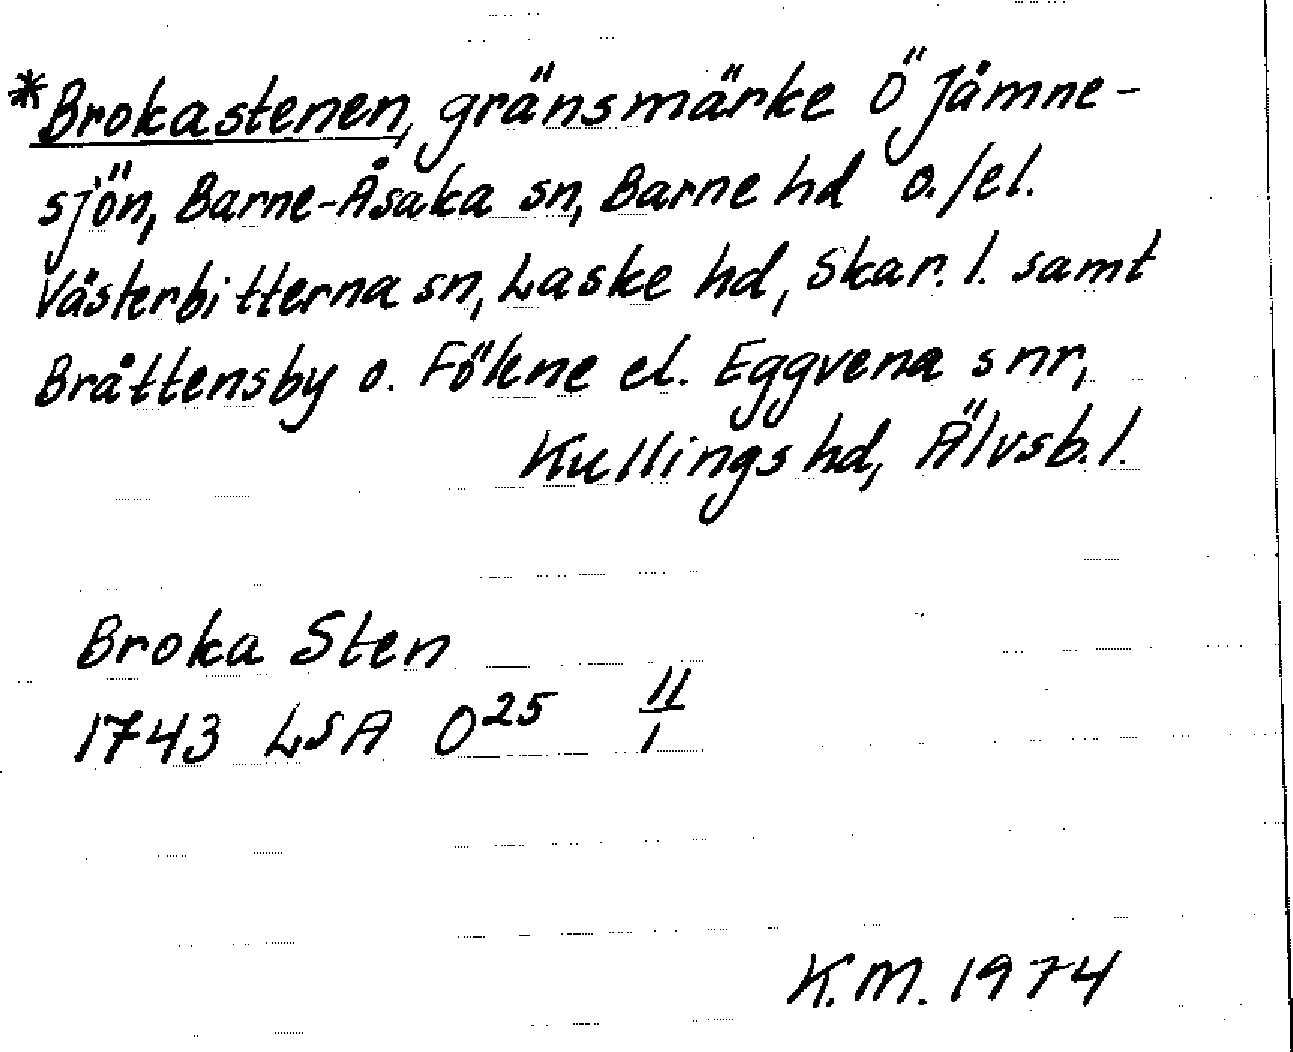 *Brokastenen, gränsmärke Ö Jämne-
sjön, Barne-Åsaka sn, Barne hd o./el.
Västerbitterna sn, Laske hd, Skar. l. samt
Bråttensby o. Fölene el. Eggvena snr,
Kullings hd, Älvsb. l.
Broka Sten
1743 LSA O25 11/1
K.M. 1974